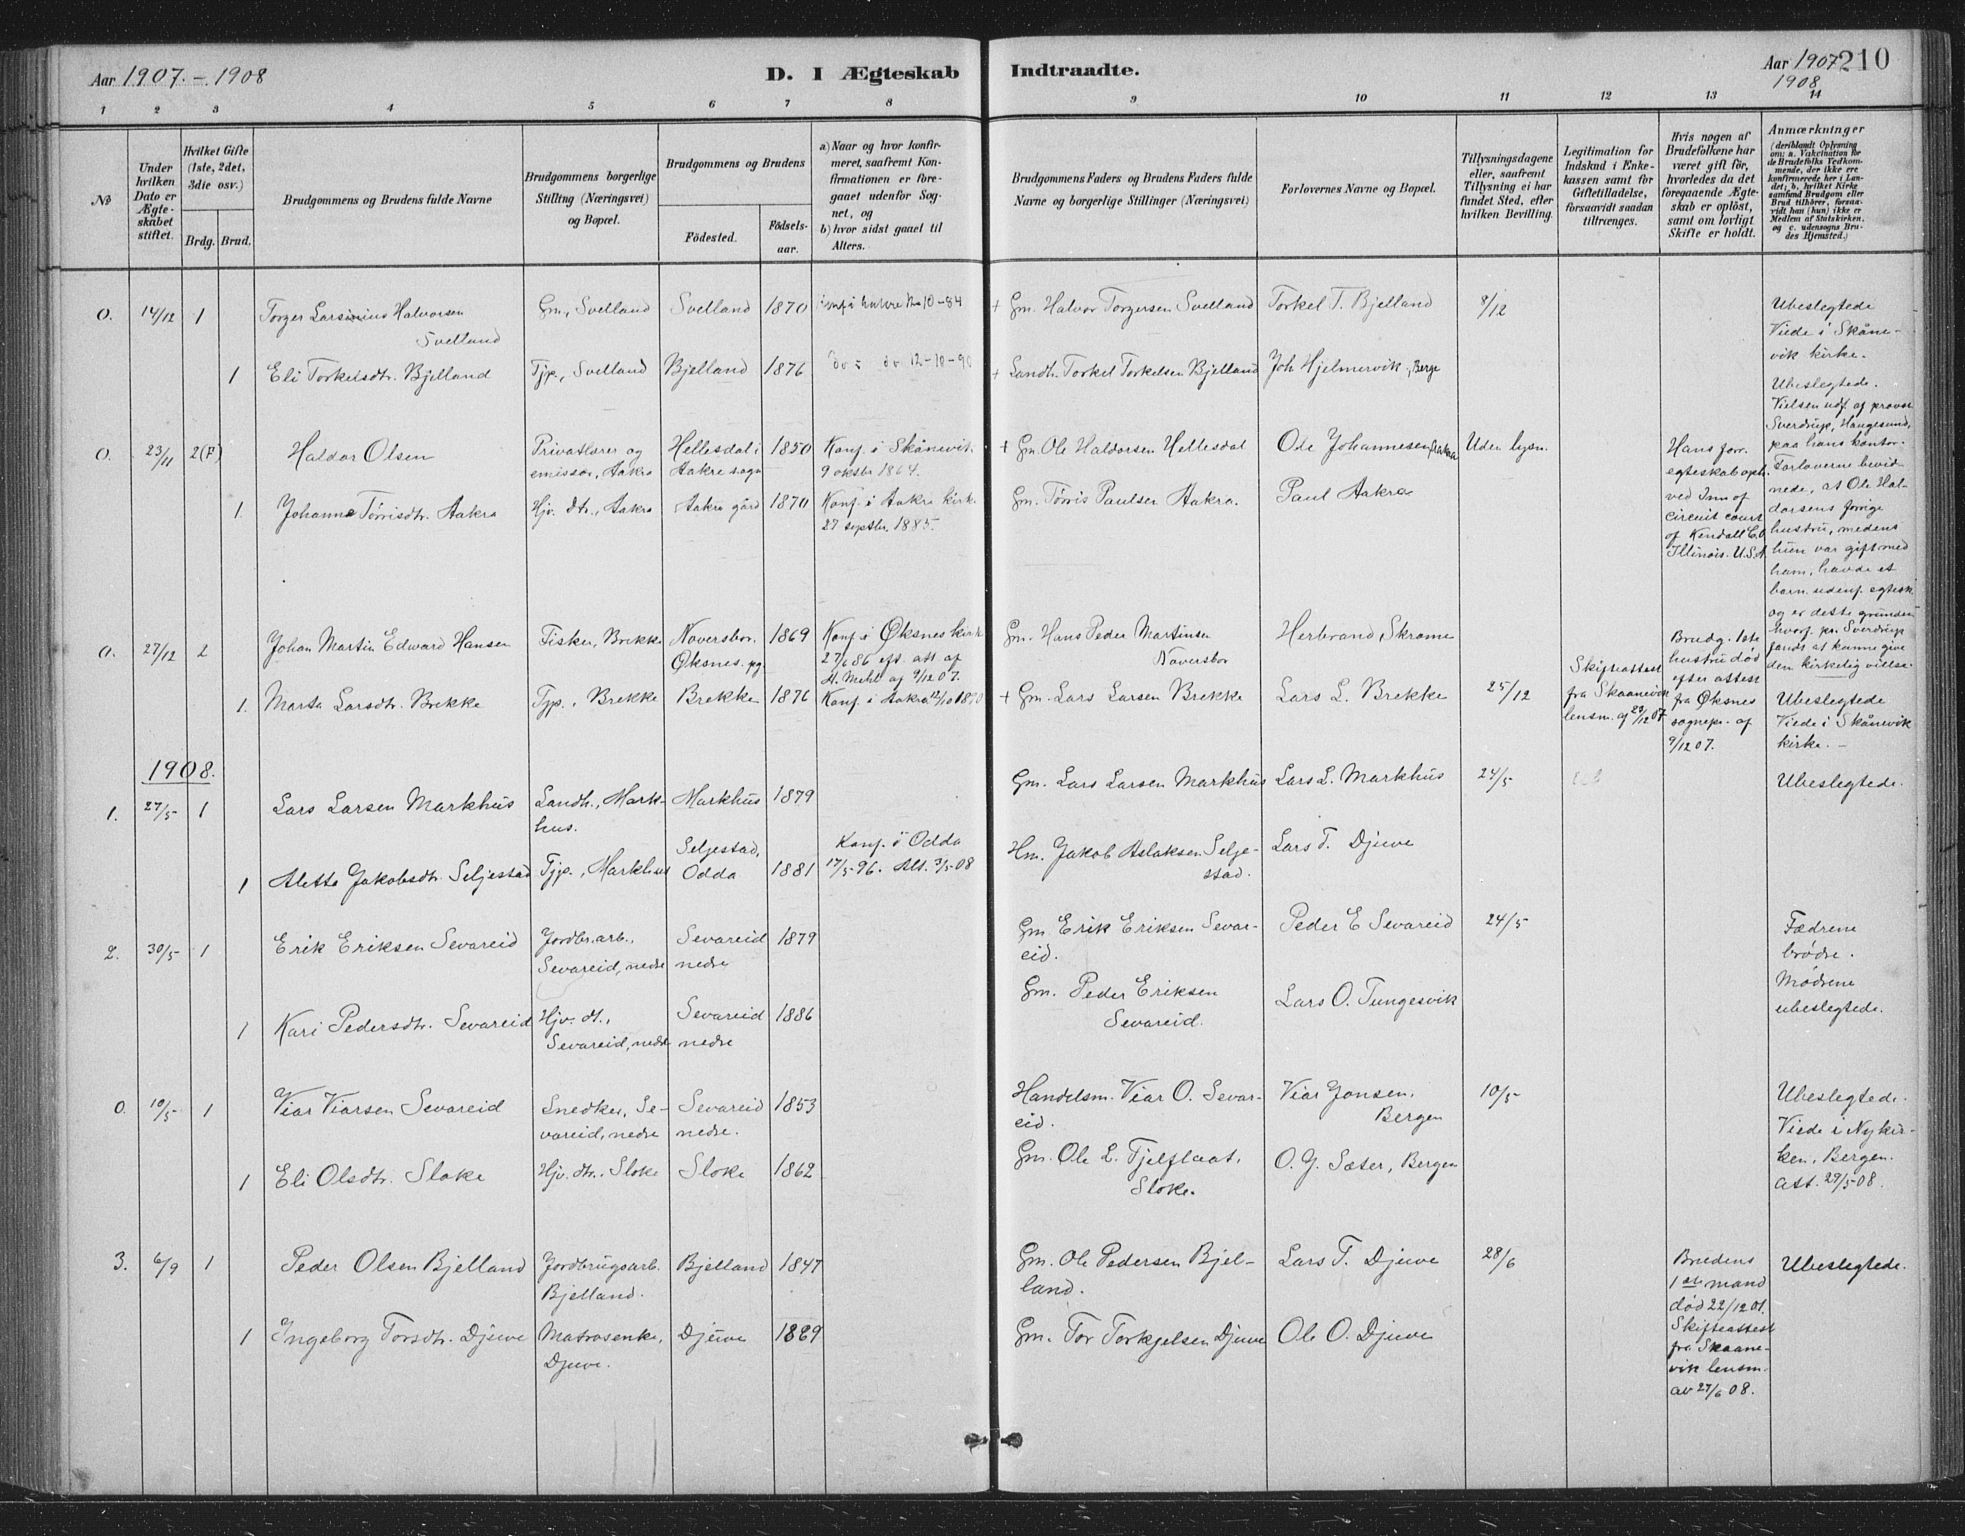 Aar 1907. – 1908
D. I Ægteskab
Indtraadte.
Aar 1907
1908
210
1 2 3 4 5 6 7 8 9 10 11 12 13 14
No
Under hvilken Dato er Ægteskabet stiftet.
Hvilket Gifte (1ste, 2det, 3die osv.)
Brdg. Brud.
Brudgommens og Brudens fulde Navne
Brudgommens borgerlige Stilling (Næringsvei) og Bopæl.
Brudgommens og Brudens
Födested.
Födselsaar.
a) Naar og hvor konfirmeret, saafremt Konfirmationen er foregaaet udenfor Sognet, og
b) hvor sidst gaaet til Alters.
Brudgommens Faders og Brudens Faders fulde Navne og borgerlige Stillinger (Næringsvei)
Forlovernes Navne og Bopæl.
Tillysningsdagene eller, saafremt Tillysning ei har fundet Sted, efter hvilken Bevilling.
Legitimation for Indskud i Enkekassen samt for Giftetilladelse, forsaavidt saadan tiltrænges.
Hvis nogen af Brudefolkene har været gift för, hvorledes da det foregaaende Ægteskab er oplöst, samt om lovligt Skifte er holdt.
Anmærkninger (deriblandt Oplysning om: a. Vakcination for de Brudefolks Vedkommende, der ikke ere konfirmerede her i Landet; b. hvilket Kirkesamfund Brudgom eller Brud tilhörer, forsaavidt han (hun) ikke er Medlem af Statskirken, og c. udensogns Brudes Hjemsted.)
0. 14/12 1 Torger Larsinius Halvorsen Svelland Gm., Svelland Svelland 1870 10-84 + Gm. Halvor Torgersen Svelland Torkel T. Bjelland 8/12 Ubeslegtede Viede i Skånevik kirke.
1 Eli Torkelsdtr. Bjelland Tjp., Svelland Bjelland 1876 do i do 12-10-90 + Landh. Torkel Torkelsen Bjelland Joh Hjelmervik, Berge
0. 23/11 2(F) Haldor Olsen Privatlærer og emissær, Aakra Hellesdal i Aakre sogn 1850 Konf. i Skånevik 9 oktbr 1864. + Gm Ole Haldorsen Hellesdal Ole Johannesen Aakra Uden lysn. Hans forr. egteskab opl. ved Inn of Circuit court of Kendall C.O Illinois. U.S.A. Ubeslegtede. Vielsen udf. af provst Sverdrup, Haugesund, paa hans kontor. Forloverne bevidnede, at Ole Haldorsens forrige hustru, medens hun var gift med ham, havde et barn udenf. egtesk. og er dette grunden hvorf. pr. Sverdrup fandt at kunne give den kirkelig vielse.
1. Johanne Tørrisdtr. Aakra Hjv. dtr., Aakra Aakra gård 1870 Konf. i Aakra kirke 27 septbr. 1885. Gm. Tørris Paulsen Aakra. Paul Aakra
0. 27/12 2 Johan Martin Edward Hansen Fisker, Brekke Naversbor. Øksnes. pg 1869 Konf. i Øksnes kirke 27/6 86 eft. att. af H. Mehl af 9/12 07. Gm. Hans Peder Martinsen Naversbor Herbrand Skromme Brudg. 1ste hustru død efter attest fra Øksnes sognepr. af 9/12 07.
1. Marta Larsdtr. Brekke Tjp., Brekke Brekke 1876 Konf. i Aakra 12/10 1890 + Gm. Lars Larsen Brekke Lars L. Brekke 25/12 Skifteattest fra Skaanevik lensm. af 23/12 07 Ubeslegtede Viede i Skånevik kirke. –
1908.
1. 27/5 1 Lars Larsen Markhus Landh., Markhus. Markhus 1879 Gm. Lars Larsen Markhus Lars L. Markhus 24/5 Ubeslegtede.
1 Aletta Jakobsdtr. Seljestad Tjp., Markhus Seljestad, Odda 1881 Konf. i Odda 17/5-96. Alt. 3/5-08 Hm. Jakob Aslaksen Seljestad. Lars T. Djuve
2. 30/5 1 Erik Eriksen Sevareid Jordbr.arb., Sevareid, nedre Sevareid nedre 1879 Gm. Erik Eriksen Sevareid. Peder E Sevareid 24/5 Fædrene brødre. Mødrene ubeslegtede.
1 Kari Pedersdtr. Sevareid Hjv. dt., Sevareid, nedre Sevareid nedre 1886 Gm. Peder Eriksen Sevareid. Lars O. Tungesvik
0. 10/5 1 Viar Viarsen Sevareid Snedker, Sevareid, nedre Sevareid nedre. 1853 Handelsm. Viar O. Sevareid. Viar Jonsen, Bergen 10/5 Ubeslegtede. Viede i Nykirken, Bergen. Att. 29/5-08.
1 Eli Olsdtr. Sloke Hjv. dtr., Sloke Sloke 1862 Gm. Ole L. Fjelflaat, Sloke. O. J. Sæter, Bergen
3. 6/9 1 Peder Olsen Bjelland Jordbrugsarb. Bjelland. Bjelland 1847 Gm. Ole Pedersen Bjelland. Lars T. Djuve 28/6 Brudens 1ste mand død 22/12 01. Skifteattest fra Skaanevik lensm. av 27/6 08. Ubeslegtede.
1 Ingeborg Torsdtr. Djuve Matrosenke, Djuve. Djuve Gm. Tor Torkjelsen Djuve Ole O. Djuve